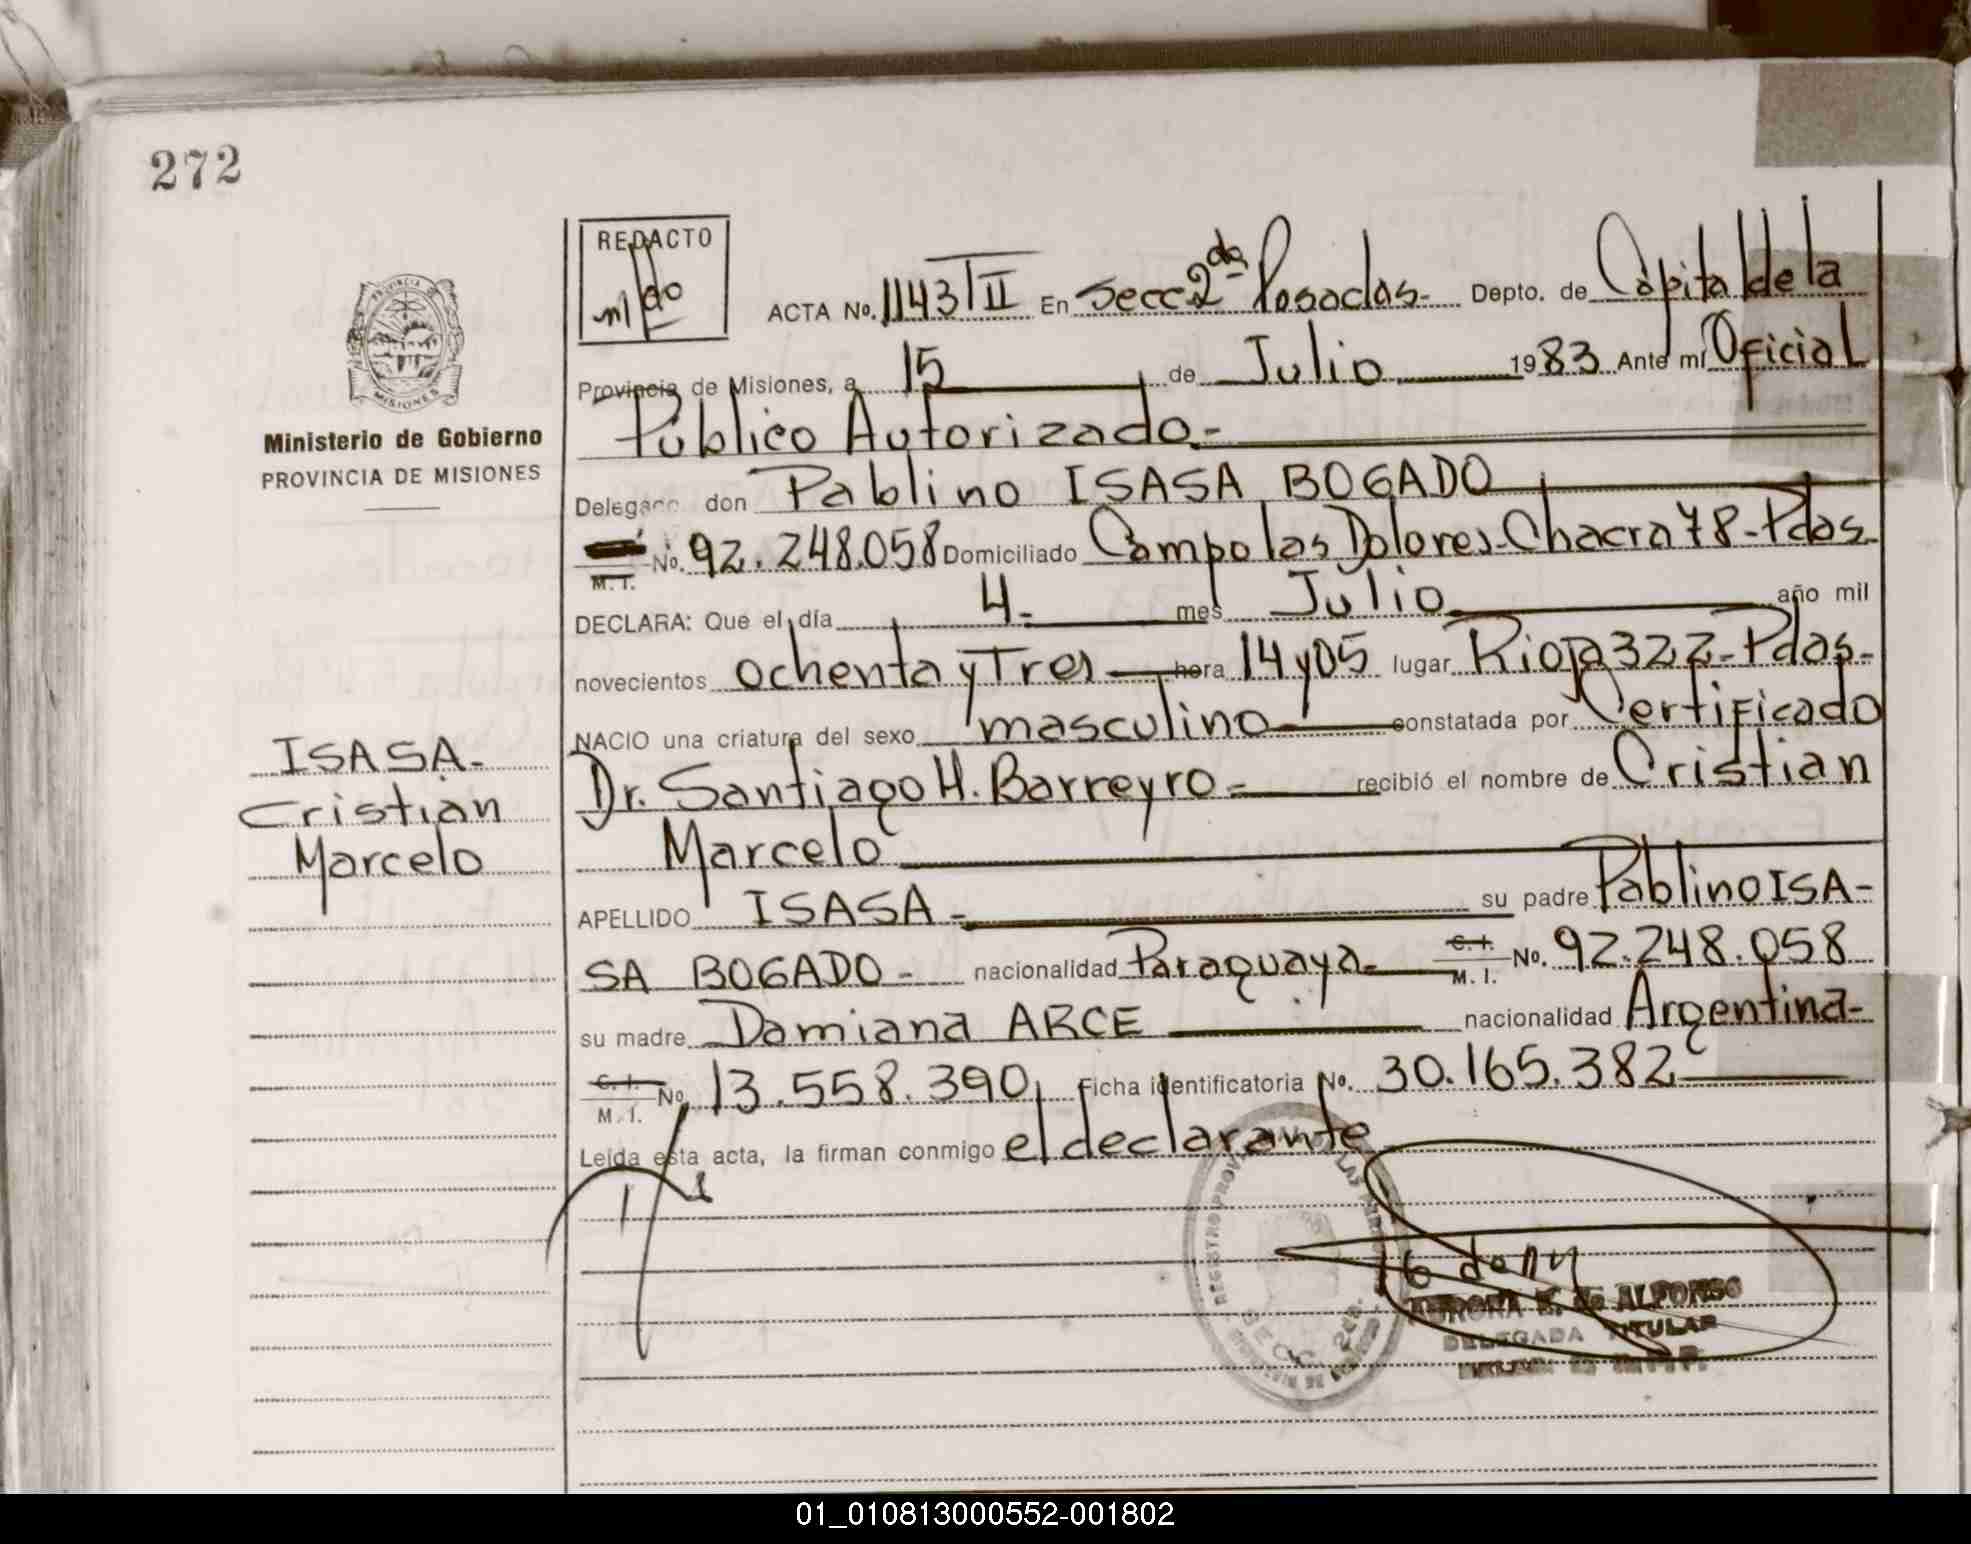 272
REDACTO
ACTA No. 1143/II En Secc 2da Posadas- Depto. de Capital de la
Provincia de Misiones, a 15 de Julio 1983 Ante mí Oficial
Público Autorizado.-
Ministerio de Gobierno
PROVINCIA DE MISIONES
MISIONES
Delegado don Pablino ISASA BOGADO
M. I. No. 92.248.058 Domiciliado Campo las Dolores-Chacra 78-Pdas.
DECLARA: Que el día 4- mes Julio año mil
novecientos ochenta y Tres hora 14 y 05 lugar Rioja 322-Pdas-
NACIO una criatura del sexo masculino constatada por Certificado
Dr. Santiago H. Barreyro- recibió el nombre de Cristian
Marcelo
ISASA-
Cristian
Marcelo
APELLIDO ISASA- su padre Pablino ISA-
SA BOGADO- nacionalidad Paraguaya- C. I. M. I. No. 92.248.058
su madre Damiana ARCE nacionalidad Argentina-
C. I. M. I. No. 13.558.390 Ficha identificatoria No. 30.165.382
Leida esta acta, la firman conmigo el declarante
REGISTRO PROV
SECC. 2da.
de ALFONSO
DELEGADA TITULAR
01_010813000552-001802